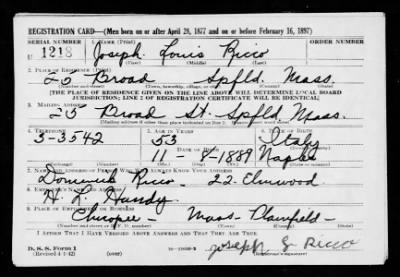 REGISTRATION CARD—(Men born on or after April 28, 1877 and on or before February 16, 1897)
SERIAL NUMBER 1. NAME (Print) ORDER NUMBER
U 1218 Joseph Louis Ricco
(First) (Middle) (Last)
2. PLACE OF RESIDENCE (Print)
25 Broad Spfld. Mass.
(Number and street) (Town, township, village, or city) (County) (State)
[THE PLACE OF RESIDENCE GIVEN ON THE LINE ABOVE WILL DETERMINE LOCAL BOARD
JURISDICTION; LINE 2 OF REGISTRATION CERTIFICATE WILL BE IDENTICAL]
3. MAILING ADDRESS
25 Broad St. Spfld, Mass.
[Mailing address if other than place indicated on line 2. If same insert word same]
4. TELEPHONE 5. AGE IN YEARS 6. PLACE OF BIRTH
3-3542 53 Italy
DATE OF BIRTH
11 - 8 - 1889 Naples
(Exchange) (Number) (Mo.) (Day) (Yr.) (State or country)
7. NAME AND ADDRESS OF PERSON WHO WILL ALWAYS KNOW YOUR ADDRESS
Ricco - 22 Elmwood
8. EMPLOYER'S NAME AND ADDRESS
H. L. Handy
9. PLACE OF EMPLOYMENT OR BUSINESS
Chicopee - Mass - Plainfield -
(Number and street or R. F. D. number) (Town) (County) (State)
I AFFIRM THAT I HAVE VERIFIED ABOVE ANSWERS AND THAT THEY ARE TRUE.
D. S. S. Form 1
(Revised 4-1-42) (over)
Joseph L Ricco